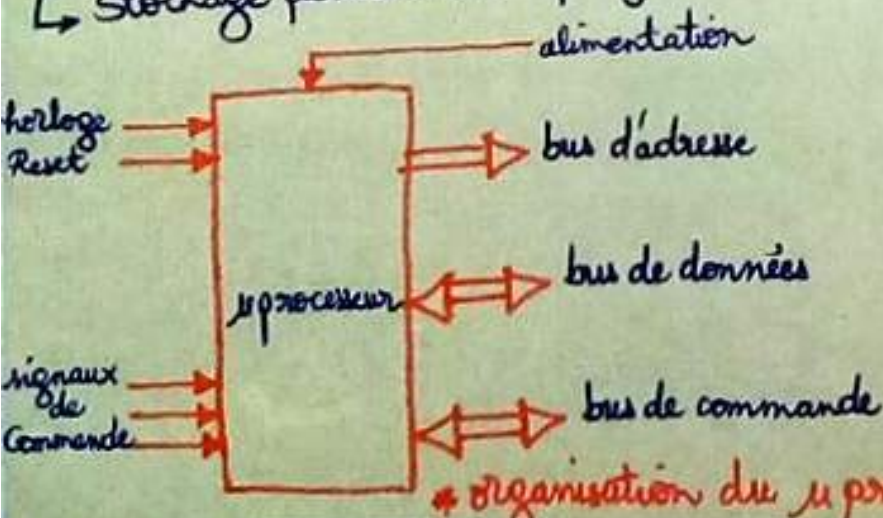 ↳ Stockage
alimentation
horloge
Reset
bus d'adresse
bus de données
µprocesseur
signaux
de
Commande
bus de commande
* organisation du µ pr